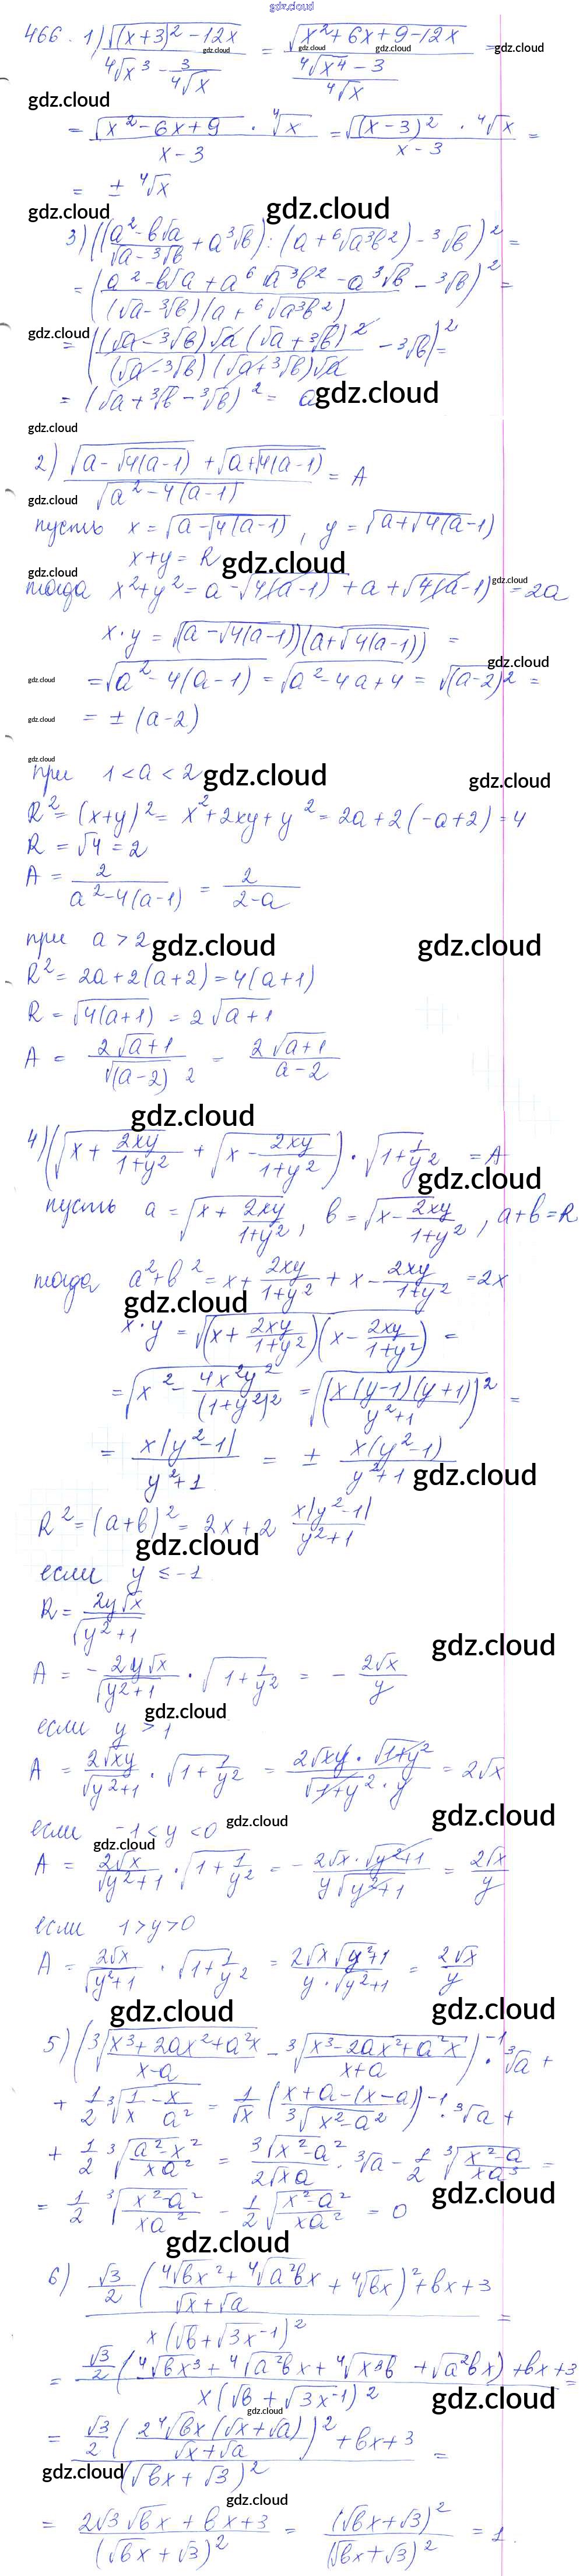 gdz.cloud
466. 1) √((x+3)² - 12x) / (⁴√x³ - 3/⁴√x) = √(x² + 6x + 9 - 12x) / ((⁴√x⁴ - 3)/⁴√x) =
gdz.cloud
= √(x² - 6x + 9) · ⁴√x / (x - 3) = √((x - 3)²) · ⁴√x / (x - 3) =
= ± ⁴√x
gdz.cloud gdz.cloud
3) ((a² - b√a)/(√a - ³√b) + a³√b) : (a + ⁶√(a³b²) - ³√b)² =
= ((a² - b√a + a ⁶√(a³b²) - a³√b)/((√a - ³√b)(a + ⁶√(a³b²))) - ³√b)² =
gdz.cloud
= (((√a - ³√b)√a(√a + ³√b)²)/((√a - ³√b)(√a + ³√b)√a) - ³√b)² =
= (√a + ³√b - ³√b)² = a
gdz.cloud
gdz.cloud
2) (√(a - √4(a-1)) + √(a + √4(a-1))) / √(a² - 4(a-1)) = A
gdz.cloud
пусть x = √(a - √4(a-1)), y = √(a + √4(a-1))
x + y = R gdz.cloud
gdz.cloud
тогда x² + y² = a - √4(a-1) + a + √4(a-1) = 2a
x · y = √((a - √4(a-1))(a + √4(a-1))) =
gdz.cloud
= √(a² - 4(a-1)) = √(a² - 4a + 4) = √((a-2)²) =
gdz.cloud = ± (a-2)
gdz.cloud
при 1 < a < 2 gdz.cloud gdz.cloud
R² = (x+y)² = x² + 2xy + y² = 2a + 2(-a+2) = 4
R = √4 = 2
A = 2/(a² - 4(a-1)) = 2/(2-a)
при a > 2 gdz.cloud gdz.cloud
R² = 2a + 2(a+2) = 4(a+1)
R = √4(a+1) = 2√(a+1)
A = 2√(a+1)/√((a-2)²) = 2√(a+1)/(a-2)
gdz.cloud
4) (√(x + 2xy/(1+y²)) + √(x - 2xy/(1+y²))) · √(1 + 1/y²) = A
gdz.cloud
пусть a = √(x + 2xy/(1+y²)), b = √(x - 2xy/(1+y²)), a+b = R
тогда a² + b² = x + 2xy/(1+y²) + x - 2xy/(1+y²) = 2x
gdz.cloud
x · y = √((x + 2xy/(1+y²))(x - 2xy/(1+y²))) =
= √(x² - 4x²y²/(1+y²)²) = √((x(y-1)(y+1)/(y²+1))²) =
= x|y²-1|/(y²+1) = ± x(y²-1)/(y²+1)
gdz.cloud
R² = (a+b)² = 2x + 2 x|y²-1|/(y²+1)
gdz.cloud
если y ≤ -1
R = 2y√x/√(y²+1)
gdz.cloud
A = - 2y√x/√(y²+1) · √(1 + 1/y²) = - 2√x/y
gdz.cloud
если y > 1
A = 2√xy/√(y²+1) · √(1 + 1/y²) = 2√xy · √(1+y²)/(√(1+y²) · y) = 2√x
gdz.cloud
если -1 < y < 0 gdz.cloud
gdz.cloud
A = 2√x/√(y²+1) · √(1 + 1/y²) = - 2√x · √(y²+1)/(y√(y²+1)) = 2√x/y
если 1 > y > 0
A = 2√x/√(y²+1) · √(1 + 1/y²) = 2√x√(y²+1)/(y · √(y²+1)) = 2√x/y
gdz.cloud gdz.cloud
5) (³√(x³ + 2ax² + a²x)/(x-a) - ³√(x³ - 2ax² + a²x)/(x+a))⁻¹ · ³√a +
+ 1/2 ³√(1/x - x/a²) = 1/√x ((x + a - (x-a))/³√(x² - a²))⁻¹ · ³√a +
+ 1/2 ³√((a² - x²)/xa²) = ³√(x² - a²)/(2√xa) · ³√a - 1/2 ³√((x² - a)/xa³) =
gdz.cloud
= 1/2 ³√((x² - a²)/xa²) - 1/2 √((x² - a²)/xa²) = 0
gdz.cloud
6) (√3/2 ((⁴√bx² + ⁴√a²bx)/(√x + √a) + ⁴√bx)² + bx + 3) / (x(√b + √3x⁻¹)²) =
= (√3/2 (⁴√bx³ + ⁴√a²bx + ⁴√x³b + √a²bx) + bx + 3) / (x(√b + √3x⁻¹)²) =
gdz.cloud
gdz.cloud
= (√3/2 (2⁴√bx(√x + √a)/(√x + √a))² + bx + 3) / (√bx + √3)² =
gdz.cloud
gdz.cloud
= (2√3√bx + bx + 3)/(√bx + √3)² = (√bx + √3)²/(√bx + √3)² = 1.